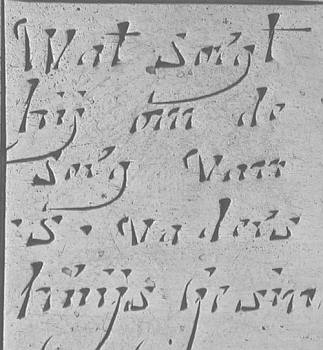 Wat Sorgt
hij om de
Sorg Voor
S Vaders
huijs gesin